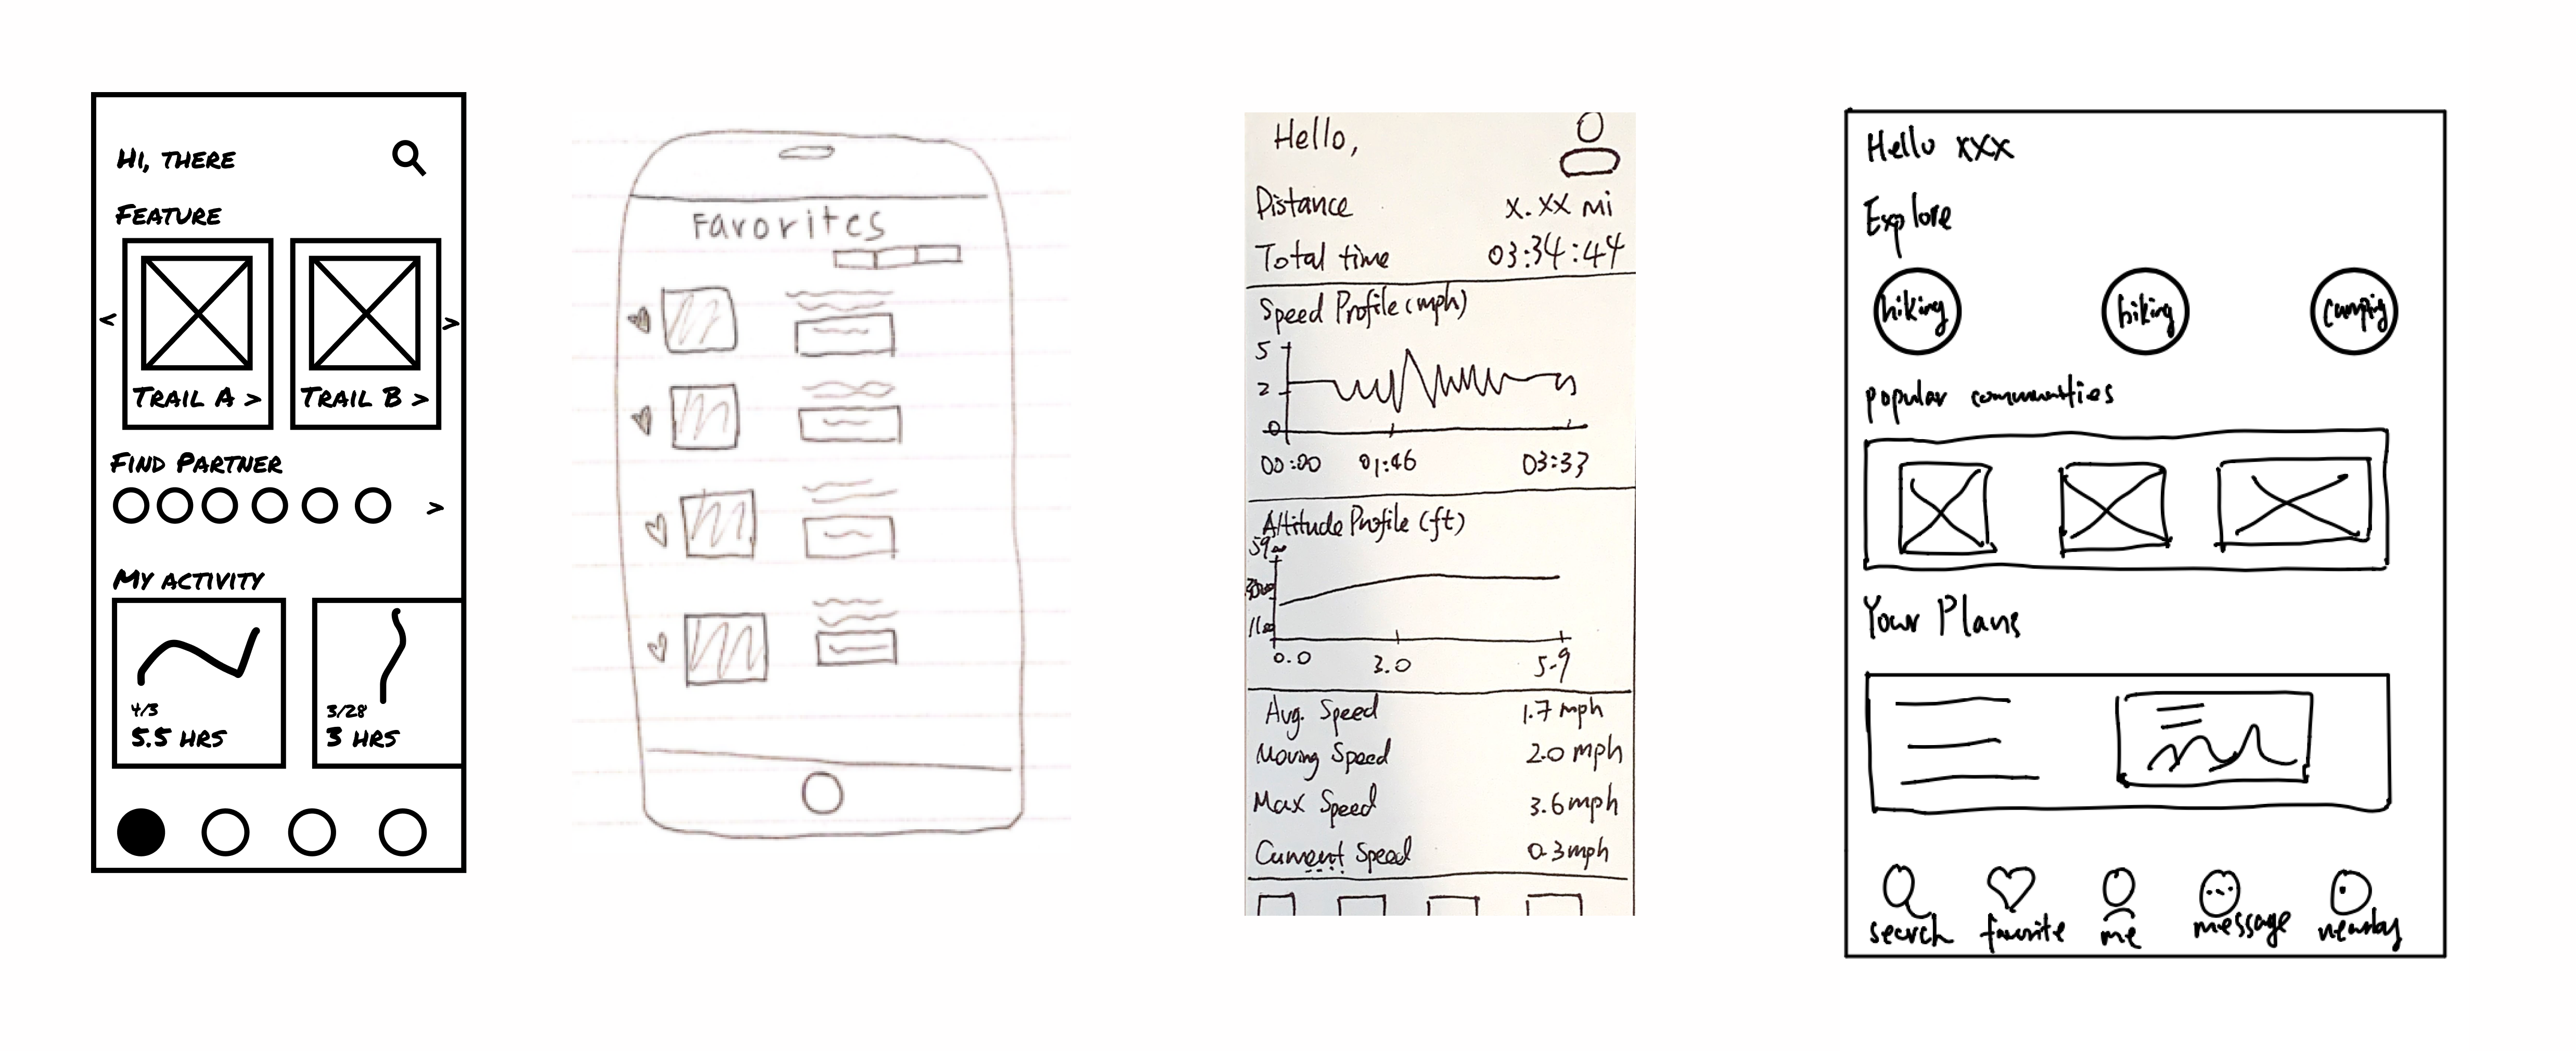 HI, THERE
FEATURE
<
>
TRAIL A >
TRAIL B >
FIND PARTNER
>
MY ACTIVITY
4/3
5.5 HRS
3/28
3 HRS
Favorites
Hello,
Distance x.xx mi
Total time 03:34:44
Speed Profile (mph)
5
2
0
00:00 01:46 03:33
Altitude Profile (ft)
0.0 3.0 5.9
Avg. Speed 1.7 mph
Moving Speed 2.0 mph
Max Speed 3.6 mph
Current Speed 0.3 mph
Hello xxx
Explore
hiking biking camping
popular communities
Your Plans
search favorite me message nearby